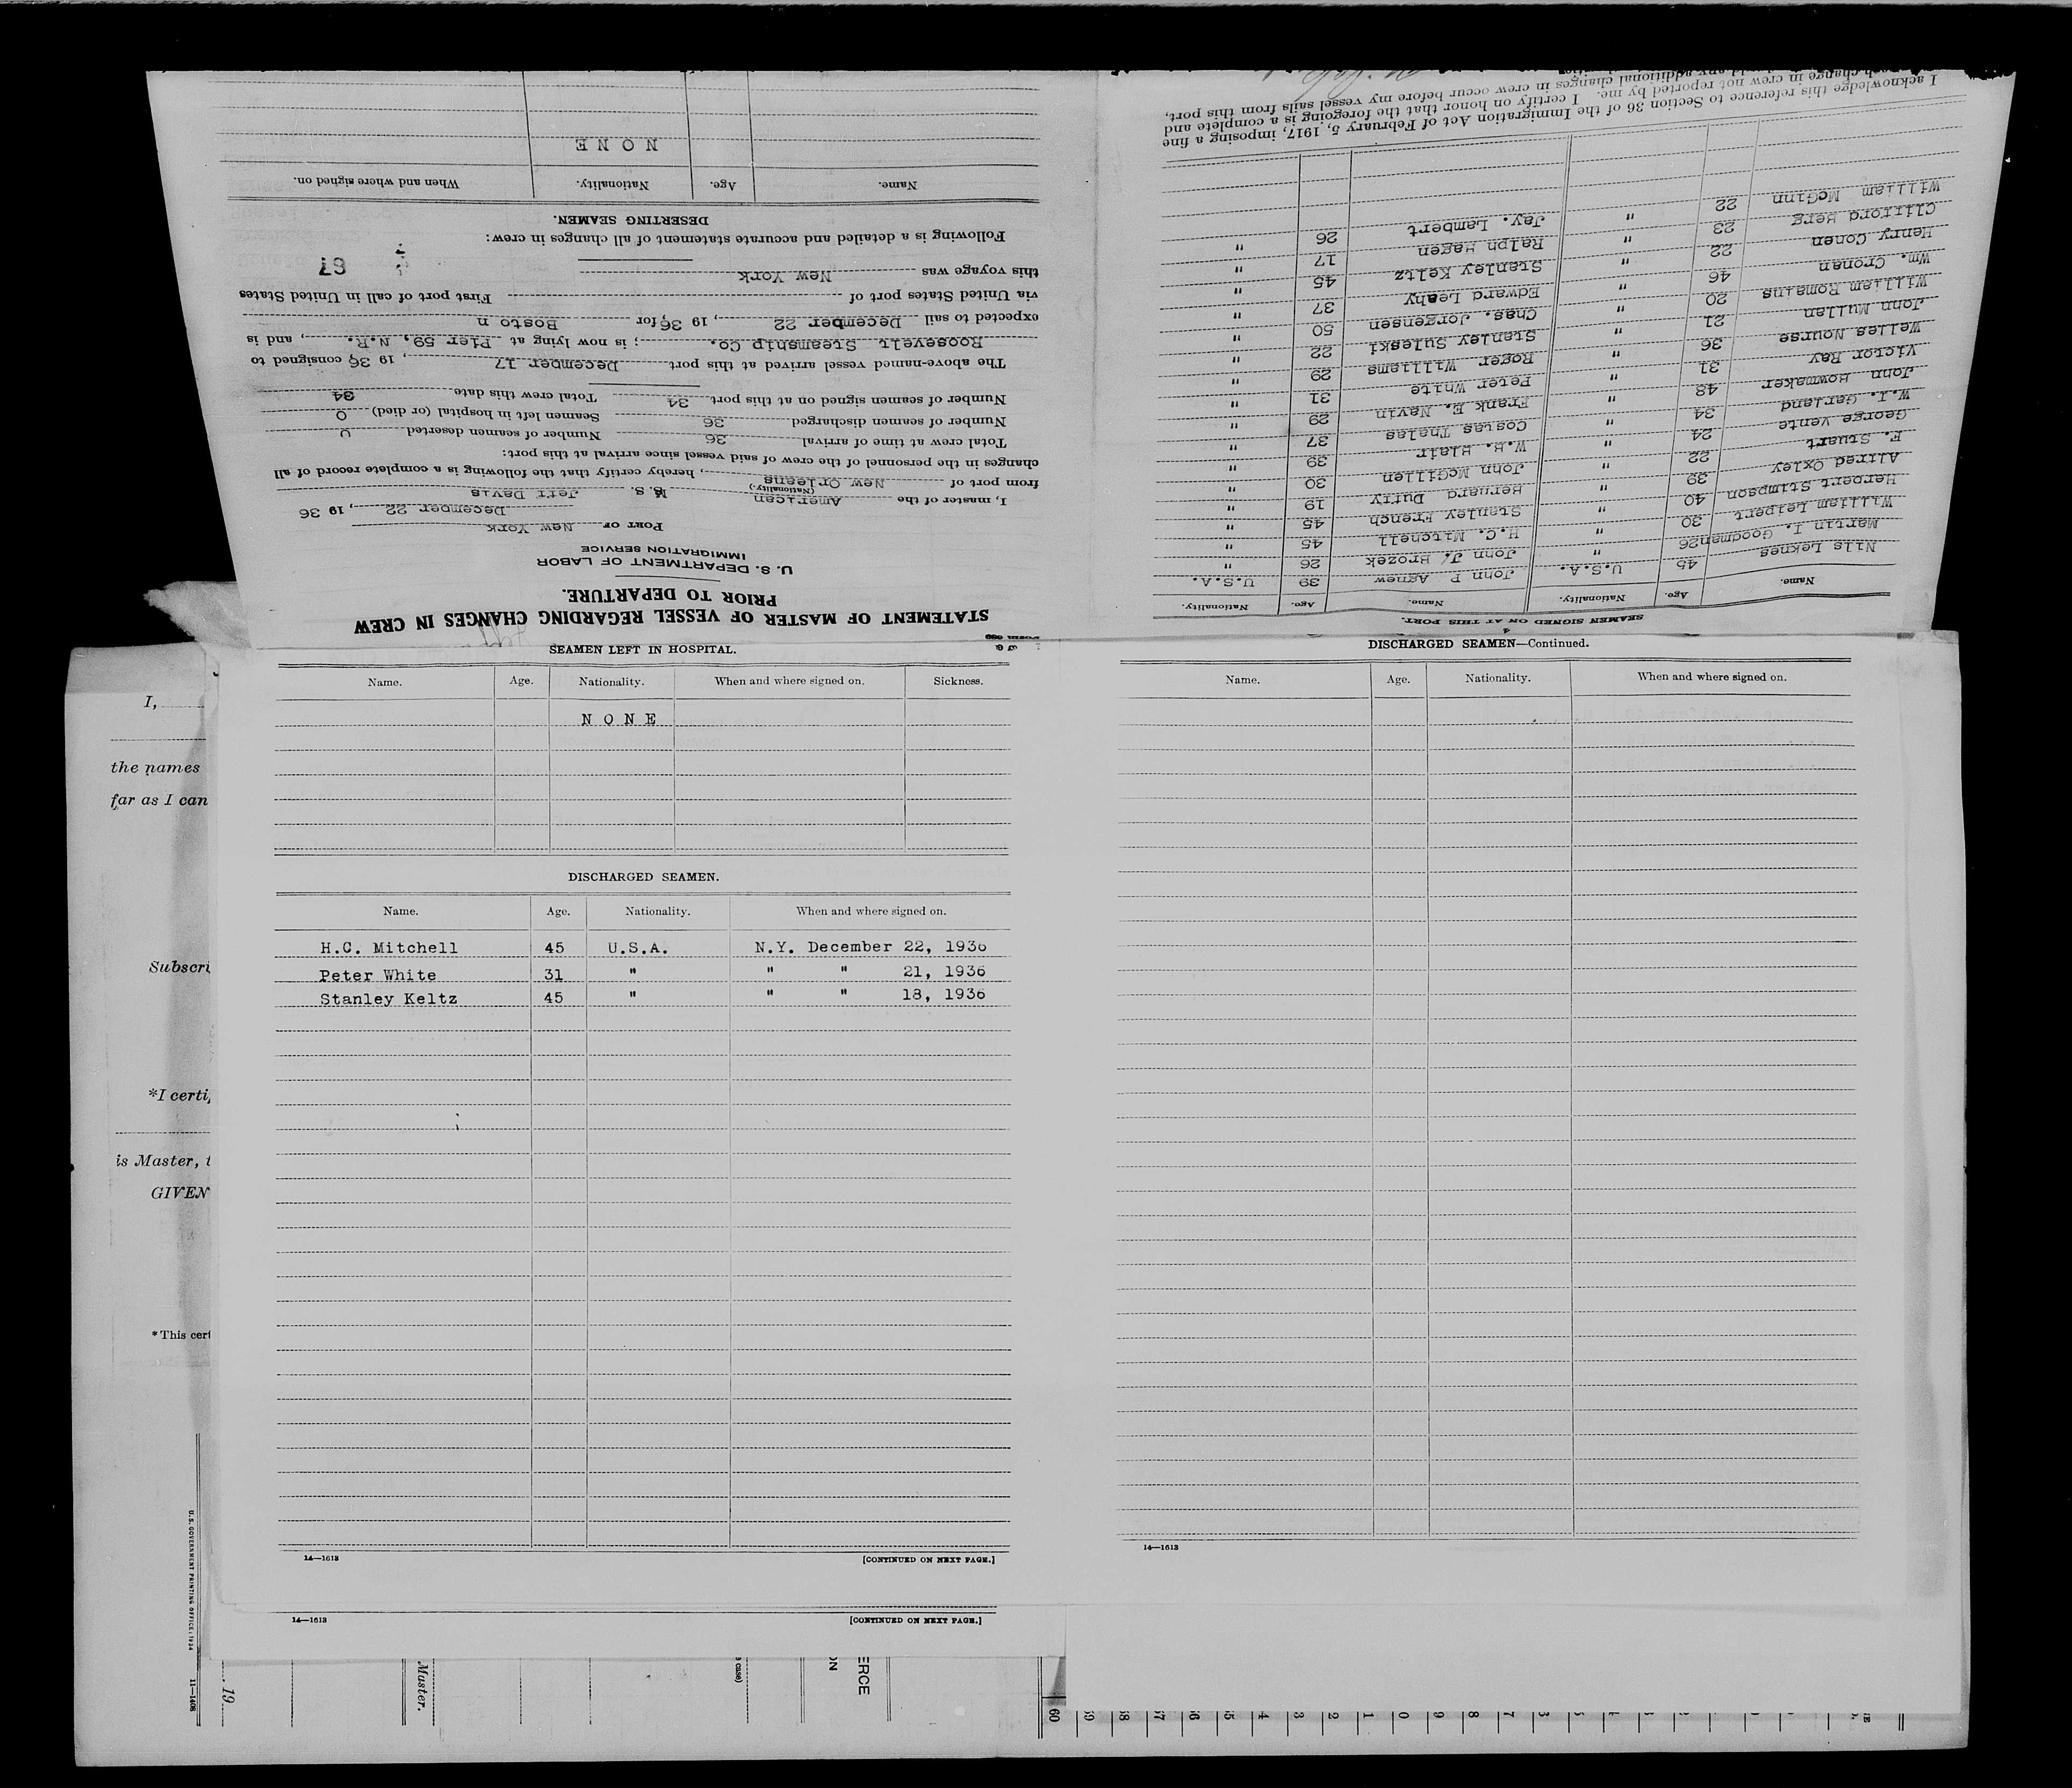 STATEMENT OF MASTER OF VESSEL REGARDING CHANGES IN CREW
PRIOR TO DEPARTURE.
U. S. DEPARTMENT OF LABOR
IMMIGRATION SERVICE
PORT OF New York
December 22, 19 36
I, master of the American M.S. Jeff Davis
(Nationality.)
from port of New Orleans, hereby certify that the following is a complete record of all
changes in the personnel of the crew of said vessel since arrival at this port:
Total crew at time of arrival 36 Number of seamen deserted 0
Number of seamen discharged 36 Seamen left in hospital (or died) 0
Number of seamen signed on at this port 34 Total crew this date 34
The above-named vessel arrived at this port December 17, 19 36, consigned to
Roosevelt Steamship Co.; is now lying at Pier 59, N.R., and is
expected to sail December 22, 19 36, for Bosto n
via United States port of First port of call in United States
this voyage was New York
67
Following is a detailed and accurate statement of all changes in crew:
DESERTING SEAMEN.
Name. Age. Nationality. When and where signed on.
N O N E
SEAMEN SIGNED ON AT THIS PORT.
Name. Age. Nationality. Name. Age. Nationality.
Nils Leknes 45 U.S.A. John P Agnew 39 U.S.A.
Martin I. Goodman 26 " John J. Brozek 26 "
William Leipert 30 " H.C. Mitchell 45 "
Herbert Stimpson 40 " Stanley French 45 "
Alfred Oxley 39 " Bernard Duffy 19 "
F. Stuart 22 " John McGillen 30 "
George Vente 24 " W.B. Blair 39 "
W.I. Garland 34 " Costas Thelas 37 "
John Bowmaker 48 " Frank E. Navin 29 "
Victor Ray 31 " Peter White 31 "
Welles Nourse 36 " Roger Williams 29 "
John Mullan 21 " Stanley Suleski 22 "
William Romains 20 " Chas. Jorgensen 50 "
Wm. Cronan 46 " Edward Leahy 37 "
Henry Conen 22 " Stanley Keltz 45 "
Clifford Berg 23 " Ralph Hagen 17 "
William McGinn 22 " Jay. Lambert 26 "
I acknowledge this reference to Section 36 of the Immigration Act of February 5, 1917, imposing a fine
not reported by me. I certify on honor that the foregoing is a complete and
additional changes in crew occur before my vessel sails from this port,
SEAMEN LEFT IN HOSPITAL.
Name. Age. Nationality. When and where signed on. Sickness.
N O N E
DISCHARGED SEAMEN.
Name. Age. Nationality. When and where signed on.
H.C. Mitchell 45 U.S.A. N.Y. December 22, 1936
Peter White 31 " " " 21, 1936
Stanley Keltz 45 " " " 18, 1936
14—1613 [CONTINUED ON NEXT PAGE.]
DISCHARGED SEAMEN—Continued.
Name. Age. Nationality. When and where signed on.
14—1613
14—1613 [CONTINUED ON NEXT PAGE.]
I,
the names
far as I can
Subscri
*I certi
is Master, t
GIVEN
* This cert
U.S. GOVERNMENT PRINTING OFFICE: 1934
11—1408
19
Master.
ERCE
60